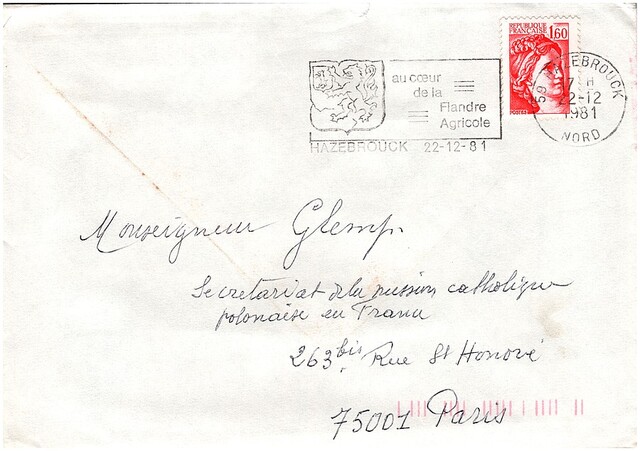 REPUBLIQUE
FRANÇAISE
1,60
POSTES
59 HAZEBROUCK
17 H
22-12
1981
NORD
au cœur
de la
Flandre
Agricole
HAZEBROUCK 22-12-81
Monseigneur Glemp.
Secretariat de la mission catholique
polonaise en France
263 bis Rue St Honoré
75001 Paris